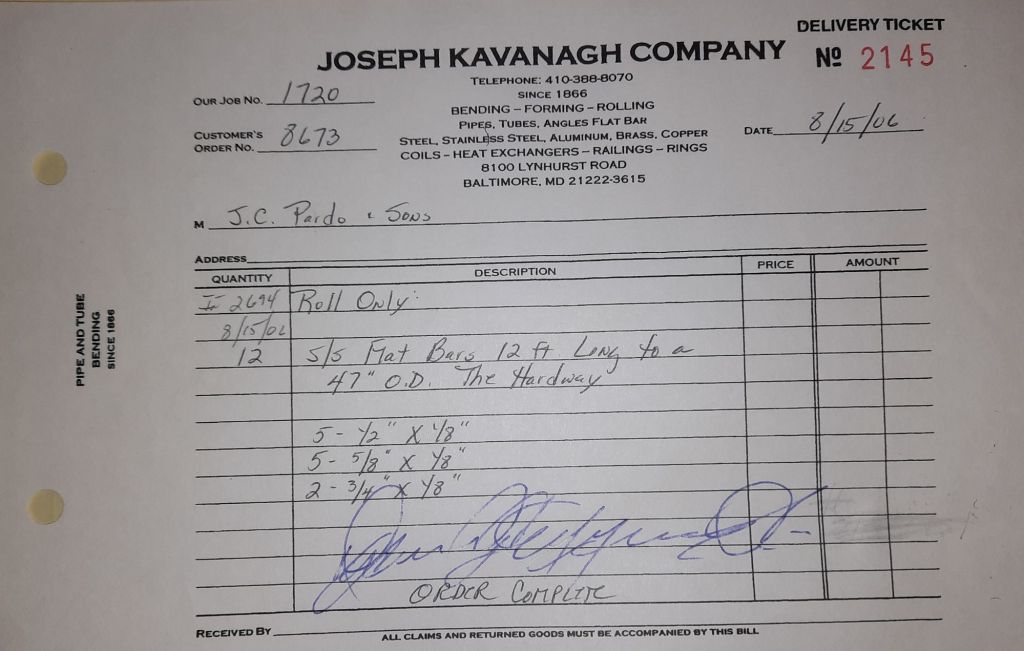 DELIVERY TICKET
JOSEPH KAVANAGH COMPANY
Nº 2145
TELEPHONE: 410-388-8070
SINCE 1866
OUR JOB NO. 1720
BENDING – FORMING – ROLLING
PIPES, TUBES, ANGLES FLAT BAR
CUSTOMER'S
ORDER NO. 8673
STEEL, STAINLESS STEEL, ALUMINUM, BRASS, COPPER
DATE 8/15/06
COILS – HEAT EXCHANGERS – RAILINGS – RINGS
8100 LYNHURST ROAD
BALTIMORE, MD 21222-3615
M J.C. Pardo & Sons
ADDRESS
QUANTITY DESCRIPTION PRICE AMOUNT
I# 2694 Roll Only:
8/15/06
12 S/S Flat Bars 12 ft Long to a
47" O.D. The Hardway
5 - 1/2" X 1/8"
5 - 5/8" X 1/8"
2 - 3/4" X 1/8"
ORDER COMPLETE
RECEIVED BY
ALL CLAIMS AND RETURNED GOODS MUST BE ACCOMPANIED BY THIS BILL
PIPE AND TUBE
BENDING
SINCE 1866